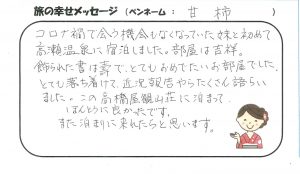 旅の幸せメッセージ（ペンネーム： 甘柿 ）
コロナ禍で会う機会もなくなっていた妹と初めて
高瀬温泉に宿泊しました。部屋は吉祥。
飾られた書は壽で、とてもおめでたいお部屋でした。
とても落ち着けて、近況報告やらたくさん語らい
ました。この高橋屋観山荘に泊まって、
ほんとうに良かったです。
また泊まりに来れたらと思います。